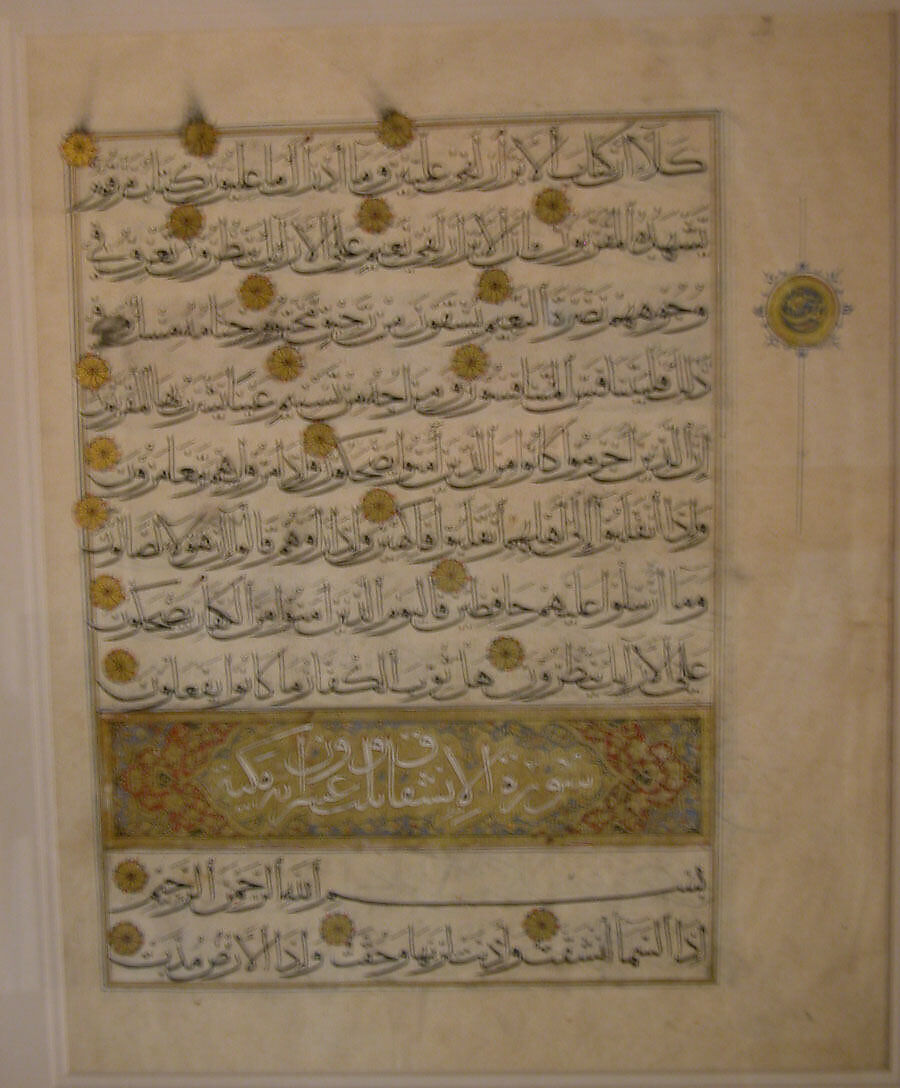 كَلَّا إِنَّ كِتَابَ الْأَبْرَارِ لَفِي عِلِّيِّينَ وَمَا أَدْرَاكَ مَا عِلِّيُّونَ كِتَابٌ مَرْقُومٌ
يَشْهَدُهُ الْمُقَرَّبُونَ إِنَّ الْأَبْرَارَ لَفِي نَعِيمٍ عَلَى الْأَرَائِكِ يَنْظُرُونَ تَعْرِفُ فِي
وُجُوهِهِمْ نَضْرَةَ النَّعِيمِ يُسْقَوْنَ مِنْ رَحِيقٍ مَخْتُومٍ خِتَامُهُ مِسْكٌ وَفِي
ذَلِكَ فَلْيَتَنَافَسِ الْمُتَنَافِسُونَ وَمِزَاجُهُ مِنْ تَسْنِيمٍ عَيْنًا يَشْرَبُ بِهَا الْمُقَرَّبُونَ
إِنَّ الَّذِينَ أَجْرَمُوا كَانُوا مِنَ الَّذِينَ آمَنُوا يَضْحَكُونَ وَإِذَا مَرُّوا بِهِمْ يَتَغَامَزُونَ
وَإِذَا انْقَلَبُوا إِلَى أَهْلِهِمُ انْقَلَبُوا فَاكِهِينَ وَإِذَا رَأَوْهُمْ قَالُوا إِنَّ هَؤُلَاءِ لَضَالُّونَ
وَمَا أُرْسِلُوا عَلَيْهِمْ حَافِظِينَ فَالْيَوْمَ الَّذِينَ آمَنُوا مِنَ الْكُفَّارِ يَضْحَكُونَ
عَلَى الْأَرَائِكِ يَنْظُرُونَ هَلْ ثُوِّبَ الْكُفَّارُ مَا كَانُوا يَفْعَلُونَ
سُورَةُ الْاِنشِقَاقِ وعشرون آية مكية
بِسْمِ اللَّهِ الرَّحْمَنِ الرَّحِيمِ
إِذَا السَّمَاءُ انْشَقَّتْ وَأَذِنَتْ لِرَبِّهَا وَحُقَّتْ وَإِذَا الْأَرْضُ مُدَّتْ